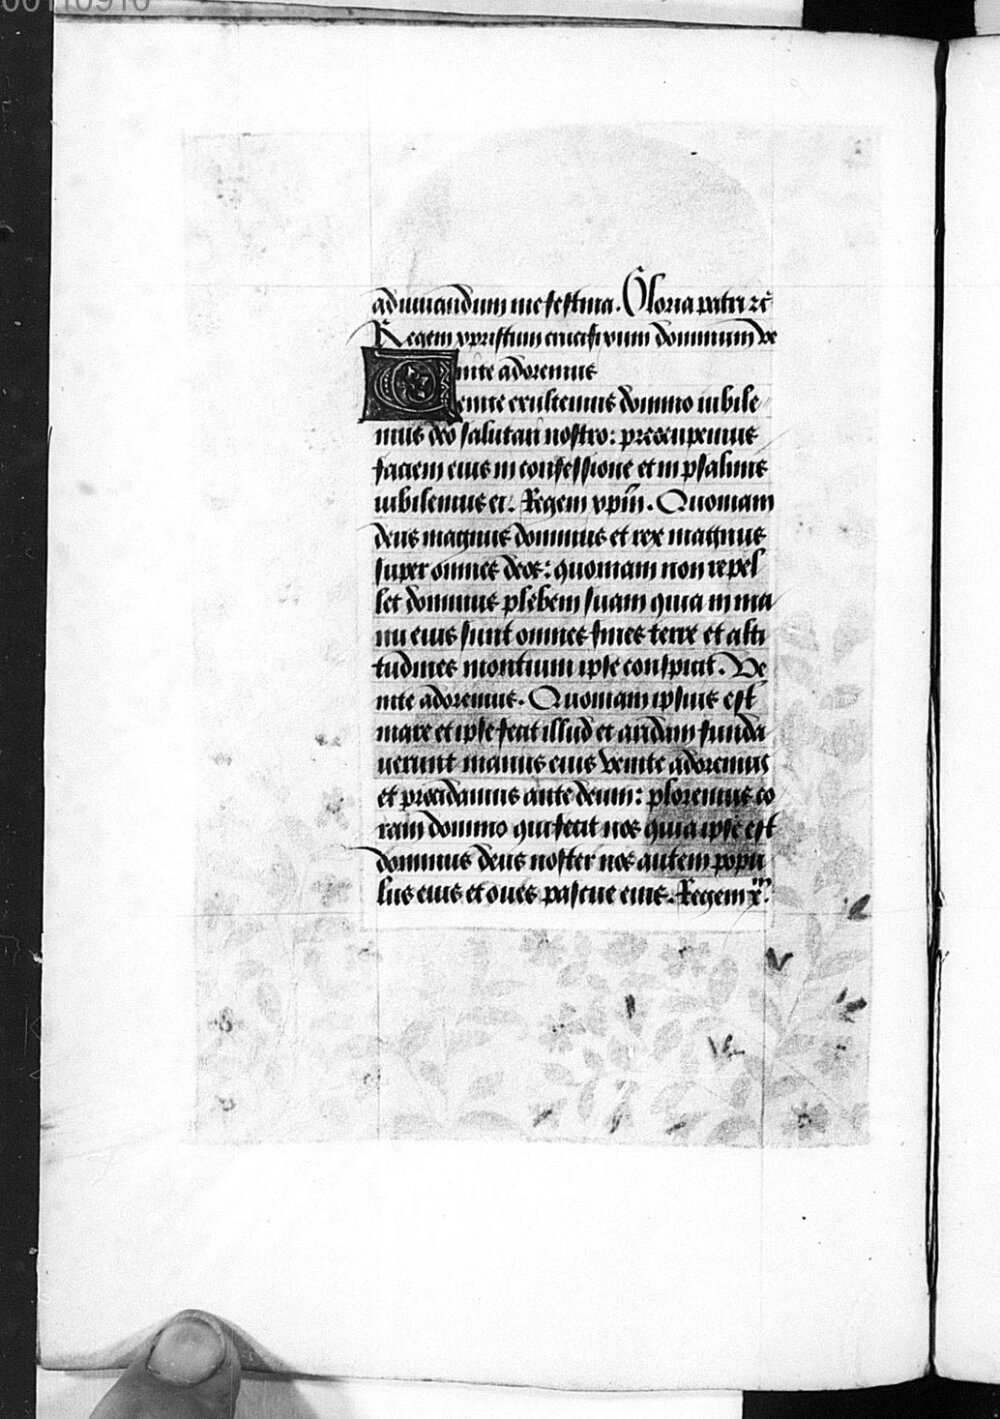 00110910
ad iuuandum me festina. Gloria patri ⁊c̃
Regem xpristum crucifixum dominum ve
nite adoremus
Venite exultemus domino iubile
mus deo salutari nostro: preocupemus
faciem eius in confessione et in psalmis
iubilemus ei. Regem xpm̃. Quoniam
deus magnus dominus et rex magnus
super omnes deos: quoniam non repel
let dominus plebem suam quia in ma
nu eius sunt omnes fines terre et alti
tudines montium ipse conspicit. Ve
nite adoremus. Quoniam ipsius est
mare et ipse fecit illud et aridam funda
uerunt manus eius venite adoremus
et procidamus ante deum: ploremus co
ram domino qui fecit nos quia ipse est
dominus deus noster nos autem popu
lus eius et oues pascue eius. Regem